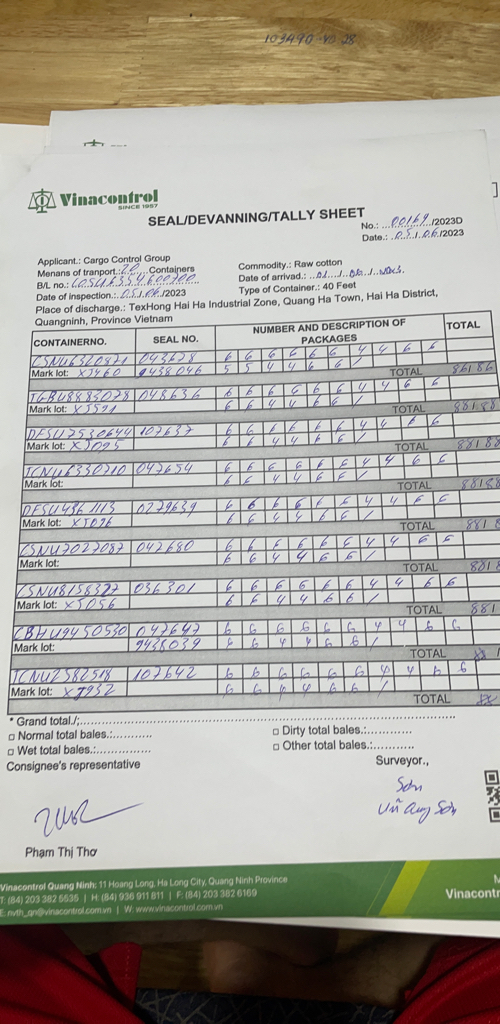 103490
Vinacontrol
SINCE 1957
SEAL/DEVANNING/TALLY SHEET
No.: 00169/2023D
Date.: 05/06/2023
Applicant.: Cargo Control Group
Commodity.: Raw cotton
Menans of tranport.: 20 Containers
Date of arrived.:
B/L no.:
Type of Container.: 40 Feet
Date of inspection.: 05/06/2023
Place of discharge.: TexHong Hai Ha Industrial Zone, Quang Ha Town, Hai Ha District,
Quangninh, Province Vietnam
CONTAINERNO. SEAL NO. NUMBER AND DESCRIPTION OF PACKAGES TOTAL
CSNU6320871 043678 6 6 6 6 6 6 4 4 6 6
Mark lot: X5460 9438046 5 5 4 4 6 6 /
TOTAL 86/86
TGBU8883078 048636 6 6 6 6 6 6 4 4 6 6
Mark lot: X5591 6 6 4 4 6 6 /
TOTAL 88/88
DFSU7530644 107637 6 6 6 6 6 6 4 4 6 6
Mark lot: X5095 6 6 4 4 6 6 /
TOTAL 88/88
TCNU6330710 047654 6 6 6 6 6 6 4 4 6 6
Mark lot: 6 6 4 4 6 6 /
TOTAL 88/88
0279639 6 6 6 6 6 6 4 4 6 6
Mark lot: X5096 6 6 4 4 6 6 /
TOTAL 88/8
CSNU7027087 047680 6 6 6 6 6 6 4 4 6 6
Mark lot: 6 6 4 4 6 6 /
TOTAL 88/8
CSNU8158327 036301 6 6 6 6 6 6 4 4 6 6
Mark lot: X5056 6 6 4 4 6 6 /
TOTAL 88/
CBHU9450530 047647 6 6 6 6 6 6 4 4 6 6
Mark lot: 9438039 6 6 4 4 6 6 /
TOTAL
TCNU2582518 107642 6 6 6 6 6 6 4 4 6 6
Mark lot: X7932 6 6 4 4 6 6 /
TOTAL
* Grand total./;
□ Normal total bales.: □ Dirty total bales.:
□ Wet total bales.: □ Other total bales.:
Consignee's representative Surveyor.,
Sơn
Sơn
Phạm Thị Thơ
Vinacontrol Quang Ninh: 11 Hoang Long, Ha Long City, Quang Ninh Province
T: (84) 203 382 5535 | H: (84) 936 911 811 | F: (84) 203 382 6169
E: nvth_qn@vinacontrol.com.vn | W: www.vinacontrol.com.vn
Vinacontr